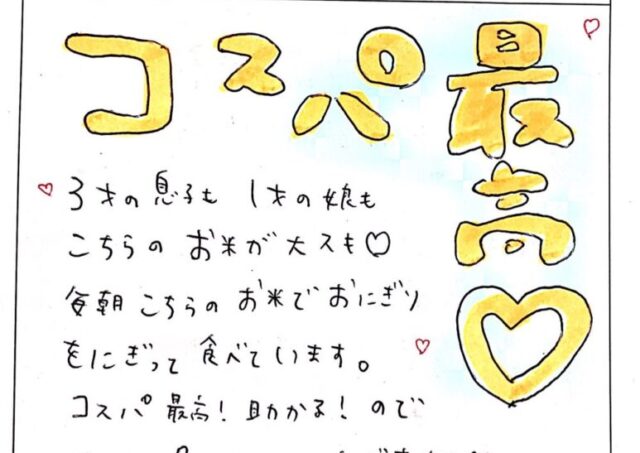 コスパ最高♡
3才の息子も 1才の娘も
こちらの お米が 大スキ♡
毎朝 こちらの お米で おにぎり
をにぎって 食べています。
コスパ 最高！助かる！ので